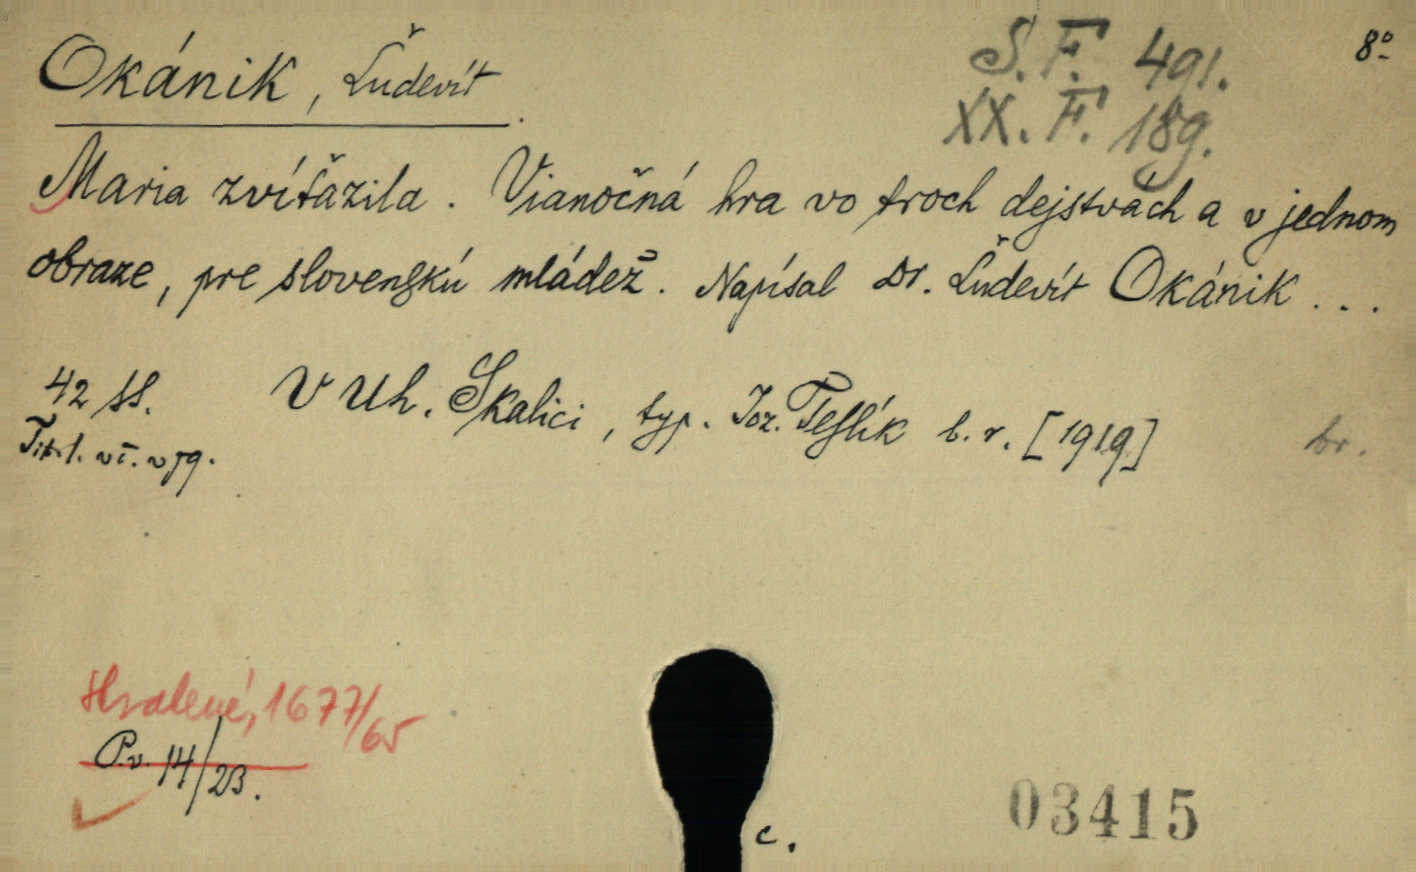 Okánik, Ľudevít.
S. F. 491.
8°
XX. F. 189.
Maria zvíťazila. Vianočná hra vo troch dejstvách a v jednom
obraze, pre slovenskú mládež. Napísal Dr. Ľudevít Okánik ...
42 ss. V Uh. Skalici, typ. Joz. Teslík b. r. [1919] br.
Titl.
1677/65
P.v. 14/23.
03415
c.